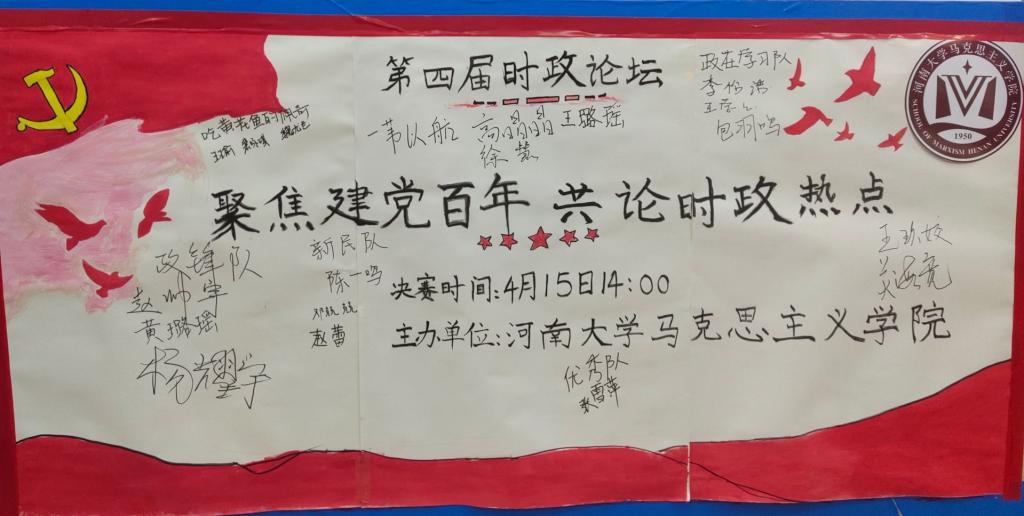 第四届时政论坛
一苇以航 高晶晶 王璐瑶
徐慧
政在学习队
李怡浩
包羽鸣
吃黄花鱼的佩奇
聚焦建党百年 共论时政热点
政锋队
赵帅军
黄璐瑶
杨耀宇
新民队
陈一鸣
赵蕾
王玖姣
决赛时间:4月15日14:00
主办单位:河南大学马克思主义学院
优秀队
张雪萍
河南大学马克思主义学院
SCHOOL OF MARXISM HENAN UNIVERSITY
1950